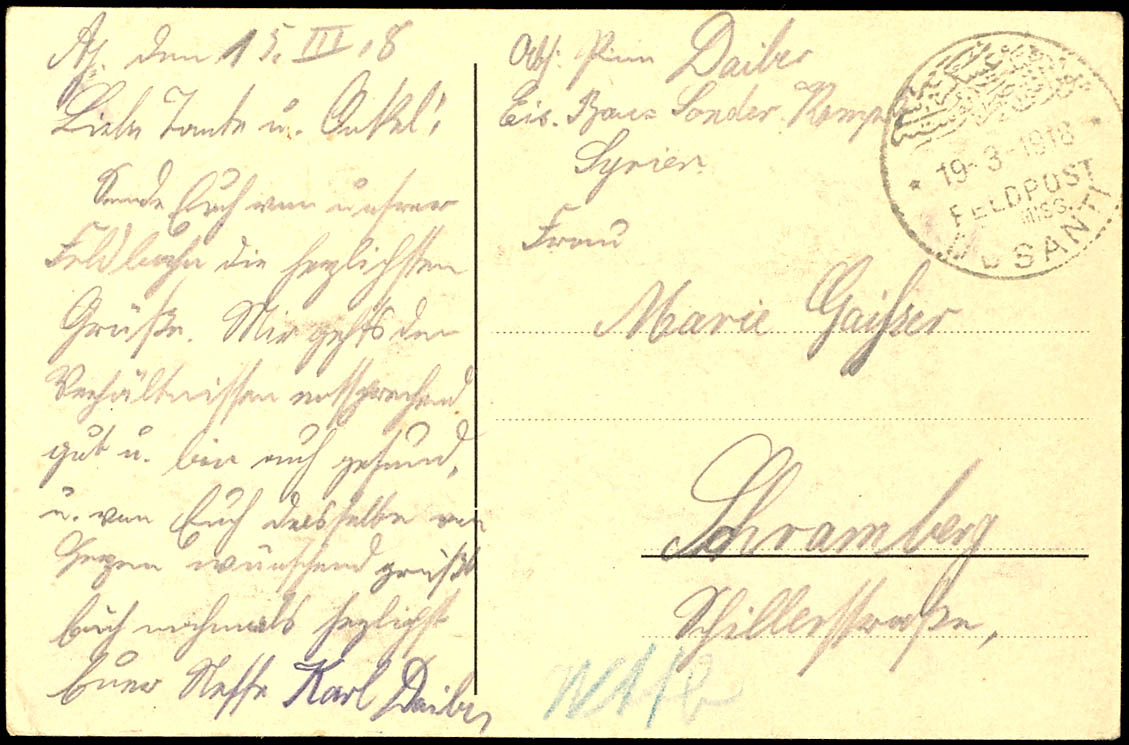 den 15. III 18
Liebe Tante u. Onkel!
Sende Euch von unserer
Feldbahn die herzlichsten
Grüße. Mir gehts den
Verhältnissen entsprechend
gut u. bin auch gesund,
u. von Euch dasselbe von
Herzen wünschend grüßt
Euch nochmals herzlichst
Euer Neffe Karl Daiber
Abs. Pion Daiber
Eis. Bau= Sonder-Komp.
Syrien
Frau
Marie Gaißer
Schramberg
Schillerstraße,
19-3-1918
FELDPOST
MISS.
BOSANTI